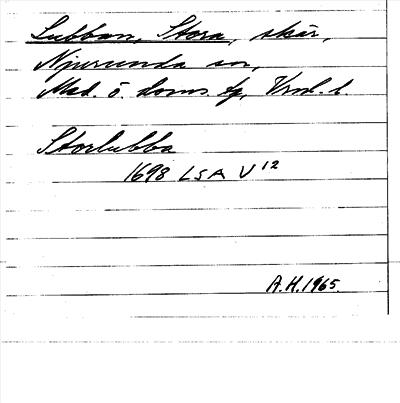 Lubban, Stora, skär,
Njurunda sn,
Med. ö. doms. tg, Vrnl. l
Storlubba
1698 LSA V 12
A.H. 1965.